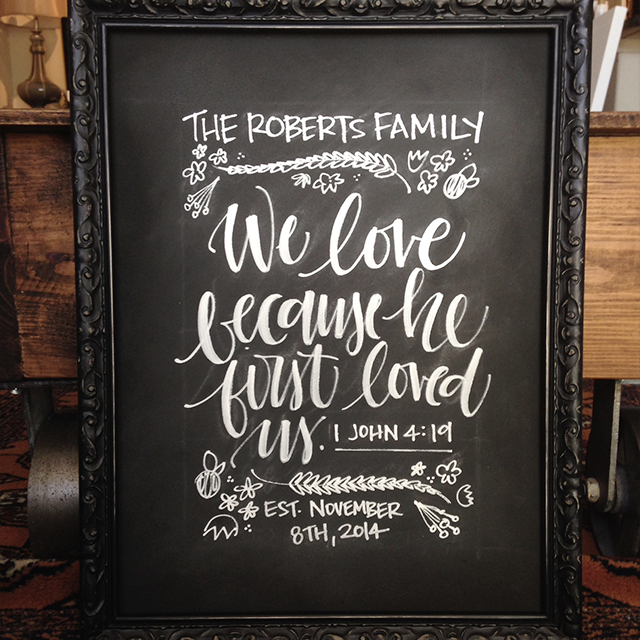 THE ROBERTS FAMILY
We love
because he
first loved
us. 1 JOHN 4:19
EST. NOVEMBER
8TH, 2014